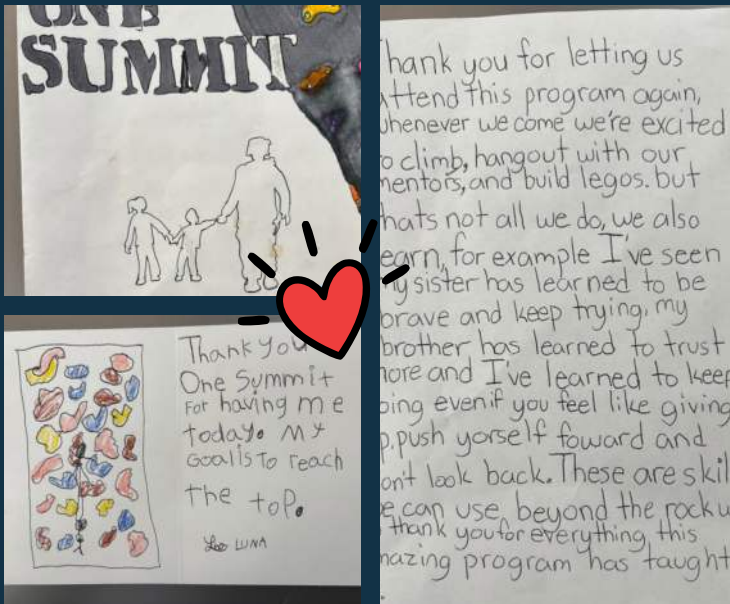 ONE
SUMMIT
Thank you
One Summit
For having me
today. My
Goal is to reach
the top.
LUNA
hank you for letting us
attend this program again,
whenever we come we're excited
to climb, hangout with our
mentors, and build legos. but
hats not all we do, we also
earn, for example I've seen
my sister has learned to be
brave and keep trying, my
brother has learned to trust
more and I've learned to keep
oing even if you feel like giving
p, push yorself foward and
on't look back. These are skil
e can use beyond the rock w
thank you for everything, this
mazing program has taught